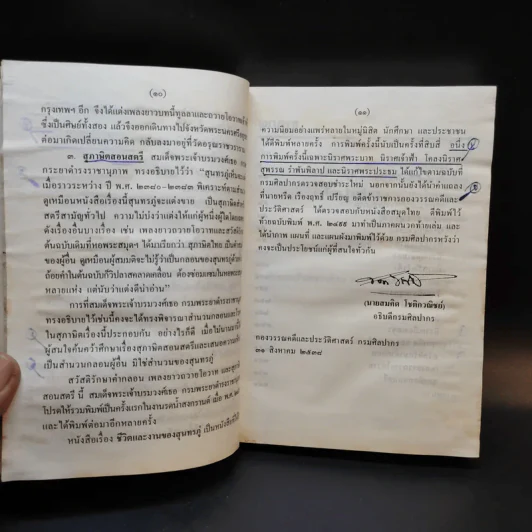 (๑๐)
กรุงเทพฯ อีก จึงได้แต่งเพลงยาวบทนี้ทูลลาและถวายโอวาท
ซึ่งเป็นศิษย์ทั้งสอง แล้วจึงออกเดินทางไปจังหวัดพระนครศรี
ต่อมาเกิดเปลี่ยนความคิด กลับลงมาอยู่ที่วัดอรุณราชวราราม
๓. สุภาษิตสอนสตรี สมเด็จพระเจ้าบรมวงศ์เธอ กรม
พระยาดำรงราชานุภาพ ทรงอธิบายไว้ว่า “สุนทรภู่เห็นจะ
เมื่อราวระหว่าง ปี พ.ศ. ๒๓๘๐-๒๓๘๓ พิเคราะห์ตาม
ดูเหมือนหนังสือเรื่องนี้สุนทรภู่จะแต่งขาย เป็นสุภาษิต
สตรีสามัญทั่วไป ความไม่บ่งว่าแต่งให้แก่ผู้หนึ่งผู้ใดโดย
ดังเรื่องอื่นบางเรื่อง เช่น เพลงยาวถวายโอวาทและสวัสดิ
ต้นฉบับเดิมที่หอพระสมุดฯ ได้มาเรียกว่า สุภาษิตไทย เป็นคำ
ของผู้อื่น ดูเหมือนผู้สมมติจะไม่รู้ว่าเป็นกลอนของสุนทรภู่
ถ้อยคำในต้นฉบับก็วิปลาสคลาดเคลื่อน ต้องซ่อมแซมในหอพระ
หลายแห่ง แต่นับว่าแต่งดีน่าอ่าน”
การที่สมเด็จพระเจ้าบรมวงศ์เธอ กรมพระยาดำรงราชา
ทรงอธิบายไว้เช่นนี้คงจะได้ทรงพิจารณาสำนวนกลอนและ
ในสุภาษิตเรื่องนี้ประกอบกัน อย่างไรก็ดี เมื่อไม่นานมา
ผู้สนใจค้นคว้าศึกษาเรื่องสุภาษิตสอนสตรีและเสนอความ
เป็นสำนวนกลอนผู้อื่น มิใช่สำนวนของสุนทรภู่
สวัสดิรักษาคำกลอน เพลงยาวถวายโอวาท และสุภาษิต
สอนสตรี นี้ สมเด็จพระเจ้าบรมวงศ์เธอ กรมพระยาดำรงราชา
โปรดให้รวมพิมพ์เป็นครั้งแรกในงานรดน้ำสงกรานต์ เมื่อ พ.ศ.
และได้พิมพ์ต่อมาอีกหลายครั้ง
หนังสือเรื่อง ชีวิตและงานของสุนทรภู่ เป็นหนังสือที่
(๑๑)
ความนิยมอย่างแพร่หลายในหมู่นิสิต นักศึกษา และประชาชน
ได้ตีพิมพ์หลายครั้ง การพิมพ์ครั้งนี้นับเป็นครั้งที่สิบสี่ อนึ่ง
การพิมพ์ครั้งนี้เฉพาะนิราศพระบาท นิราศเจ้าฟ้า โคลงนิราศ
สุพรรณ รำพันพิลาป และนิราศพระประธม ได้แก้ไขตามฉบับที่
กรมศิลปากรตรวจสอบชำระใหม่ นอกจากนั้นยังได้นำคำแถลง
ที่นายหรีด เรืองฤทธิ์ เปรียญ อดีตข้าราชการกองวรรณคดีและ
ประวัติศาสตร์ ได้ตรวจสอบกับหนังสือสมุดไทย ตีพิมพ์ไว้
ท้ายฉบับพิมพ์ พ.ศ. ๒๔๙๙ มาทำเป็นภาคผนวกท้ายเล่ม และ
ได้นำภาพ แผนที่ และแผนผังมาพิมพ์ไว้ด้วย กรมศิลปากรหวังว่า
คงจะเป็นประโยชน์แก่ผู้ที่สนใจทั่วกัน
(นายสมคิด โชติกวณิชย์)
อธิบดีกรมศิลปากร
กองวรรณคดีและประวัติศาสตร์ กรมศิลปากร
๓๑ สิงหาคม ๒๕๓๘